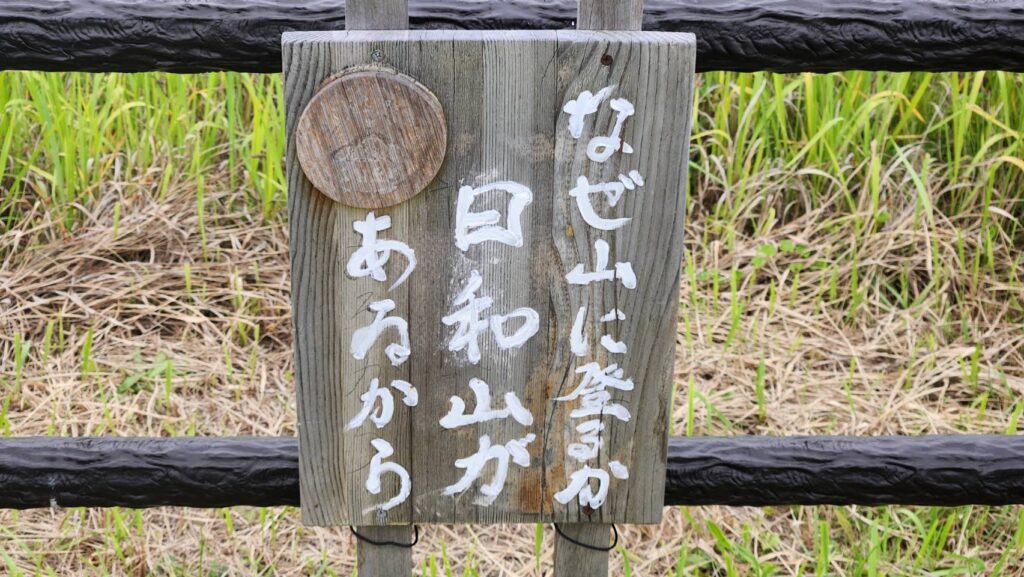 なぜ山に登るか
日和山が
あゐから